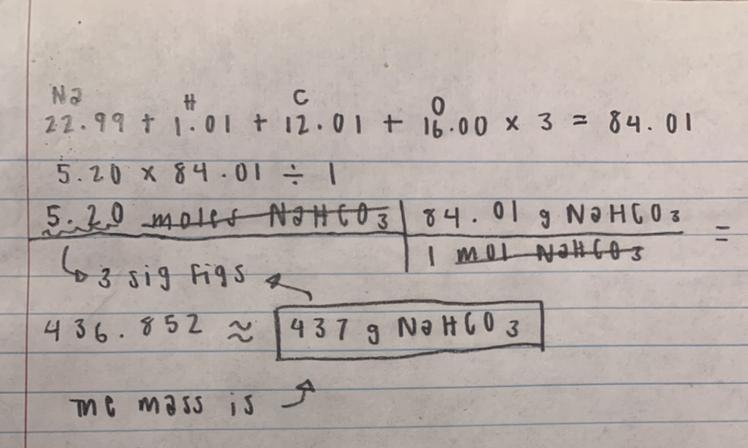 Na H C O
22.99 + 1.01 + 12.01 + 16.00 x 3 = 84.01
5.20 x 84.01 ÷ 1
5.20 moles NaHCO3 | 84.01 g NaHCO3
1 mol NaHCO3 =
↳ 3 sig figs ←
436.852 ≈ 437 g NaHCO3
the mass is